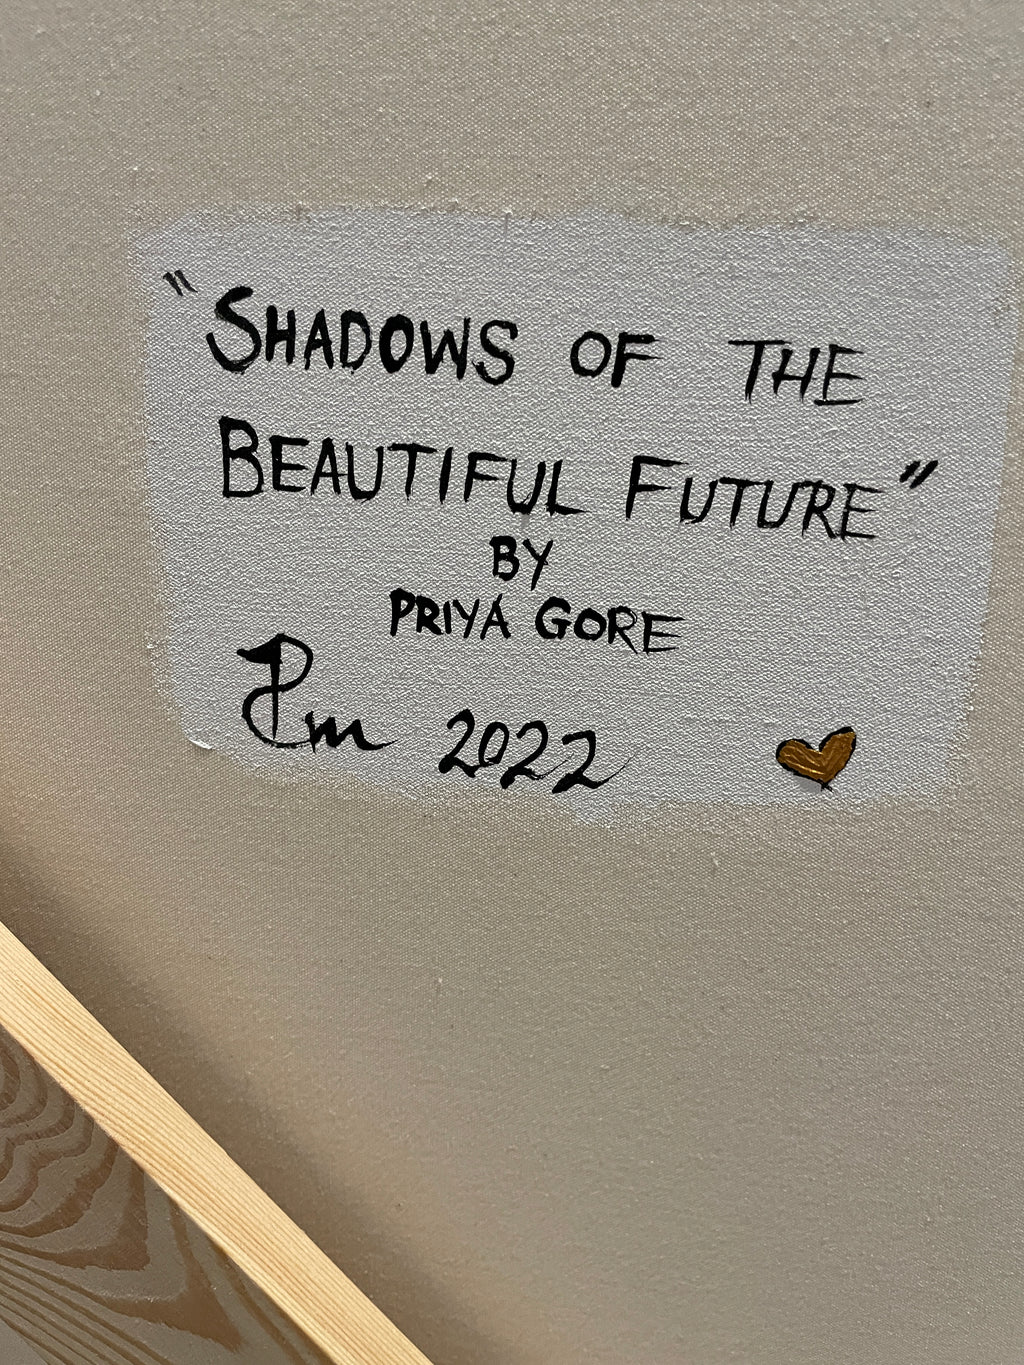 "SHADOWS OF THE
BEAUTIFUL FUTURE"
BY
PRIYA GORE
Pm 2022